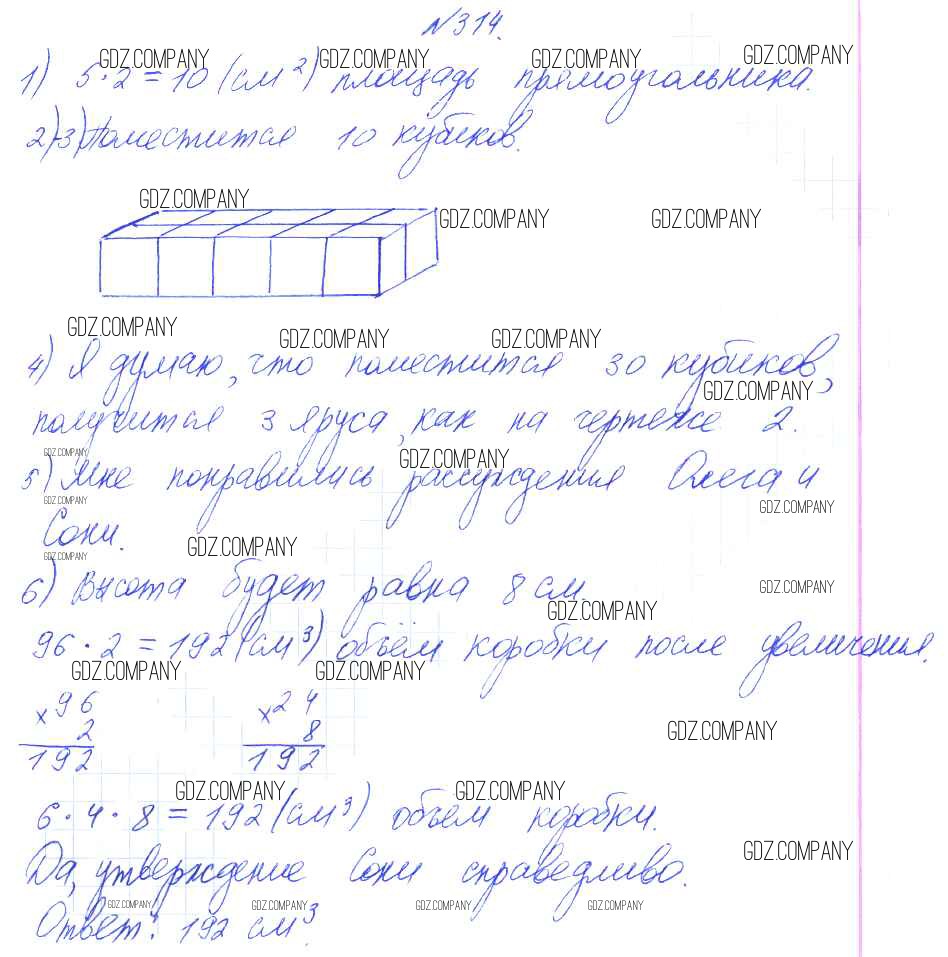 №314.
GDZ.COMPANY GDZ.COMPANY GDZ.COMPANY GDZ.COMPANY
1) 5·2=10 (см²) площадь прямоугольника.
2)-3) Поместится 10 кубиков.
GDZ.COMPANY
GDZ.COMPANY GDZ.COMPANY
GDZ.COMPANY GDZ.COMPANY GDZ.COMPANY
4) Я думаю, что поместится 30 кубиков,
GDZ.COMPANY
получится 3 яруса, как на чертеже 2.
GDZ.COMPANY GDZ.COMPANY
5) Мне понравились рассуждения Олега и
GDZ.COMPANY GDZ.COMPANY
Сони.
GDZ.COMPANY GDZ.COMPANY
6) Высота будет равна 8 см.
GDZ.COMPANY
GDZ.COMPANY
96·2=192 (см³) объём коробки после увеличения.
GDZ.COMPANY GDZ.COMPANY
×96 ×24
2 8
GDZ.COMPANY
192 192
GDZ.COMPANY GDZ.COMPANY
6·4·8=192 (см³) объём коробки.
GDZ.COMPANY
Да, утверждение Сони справедливо.
GDZ.COMPANY GDZ.COMPANY GDZ.COMPANY GDZ.COMPANY
Ответ: 192 см³.